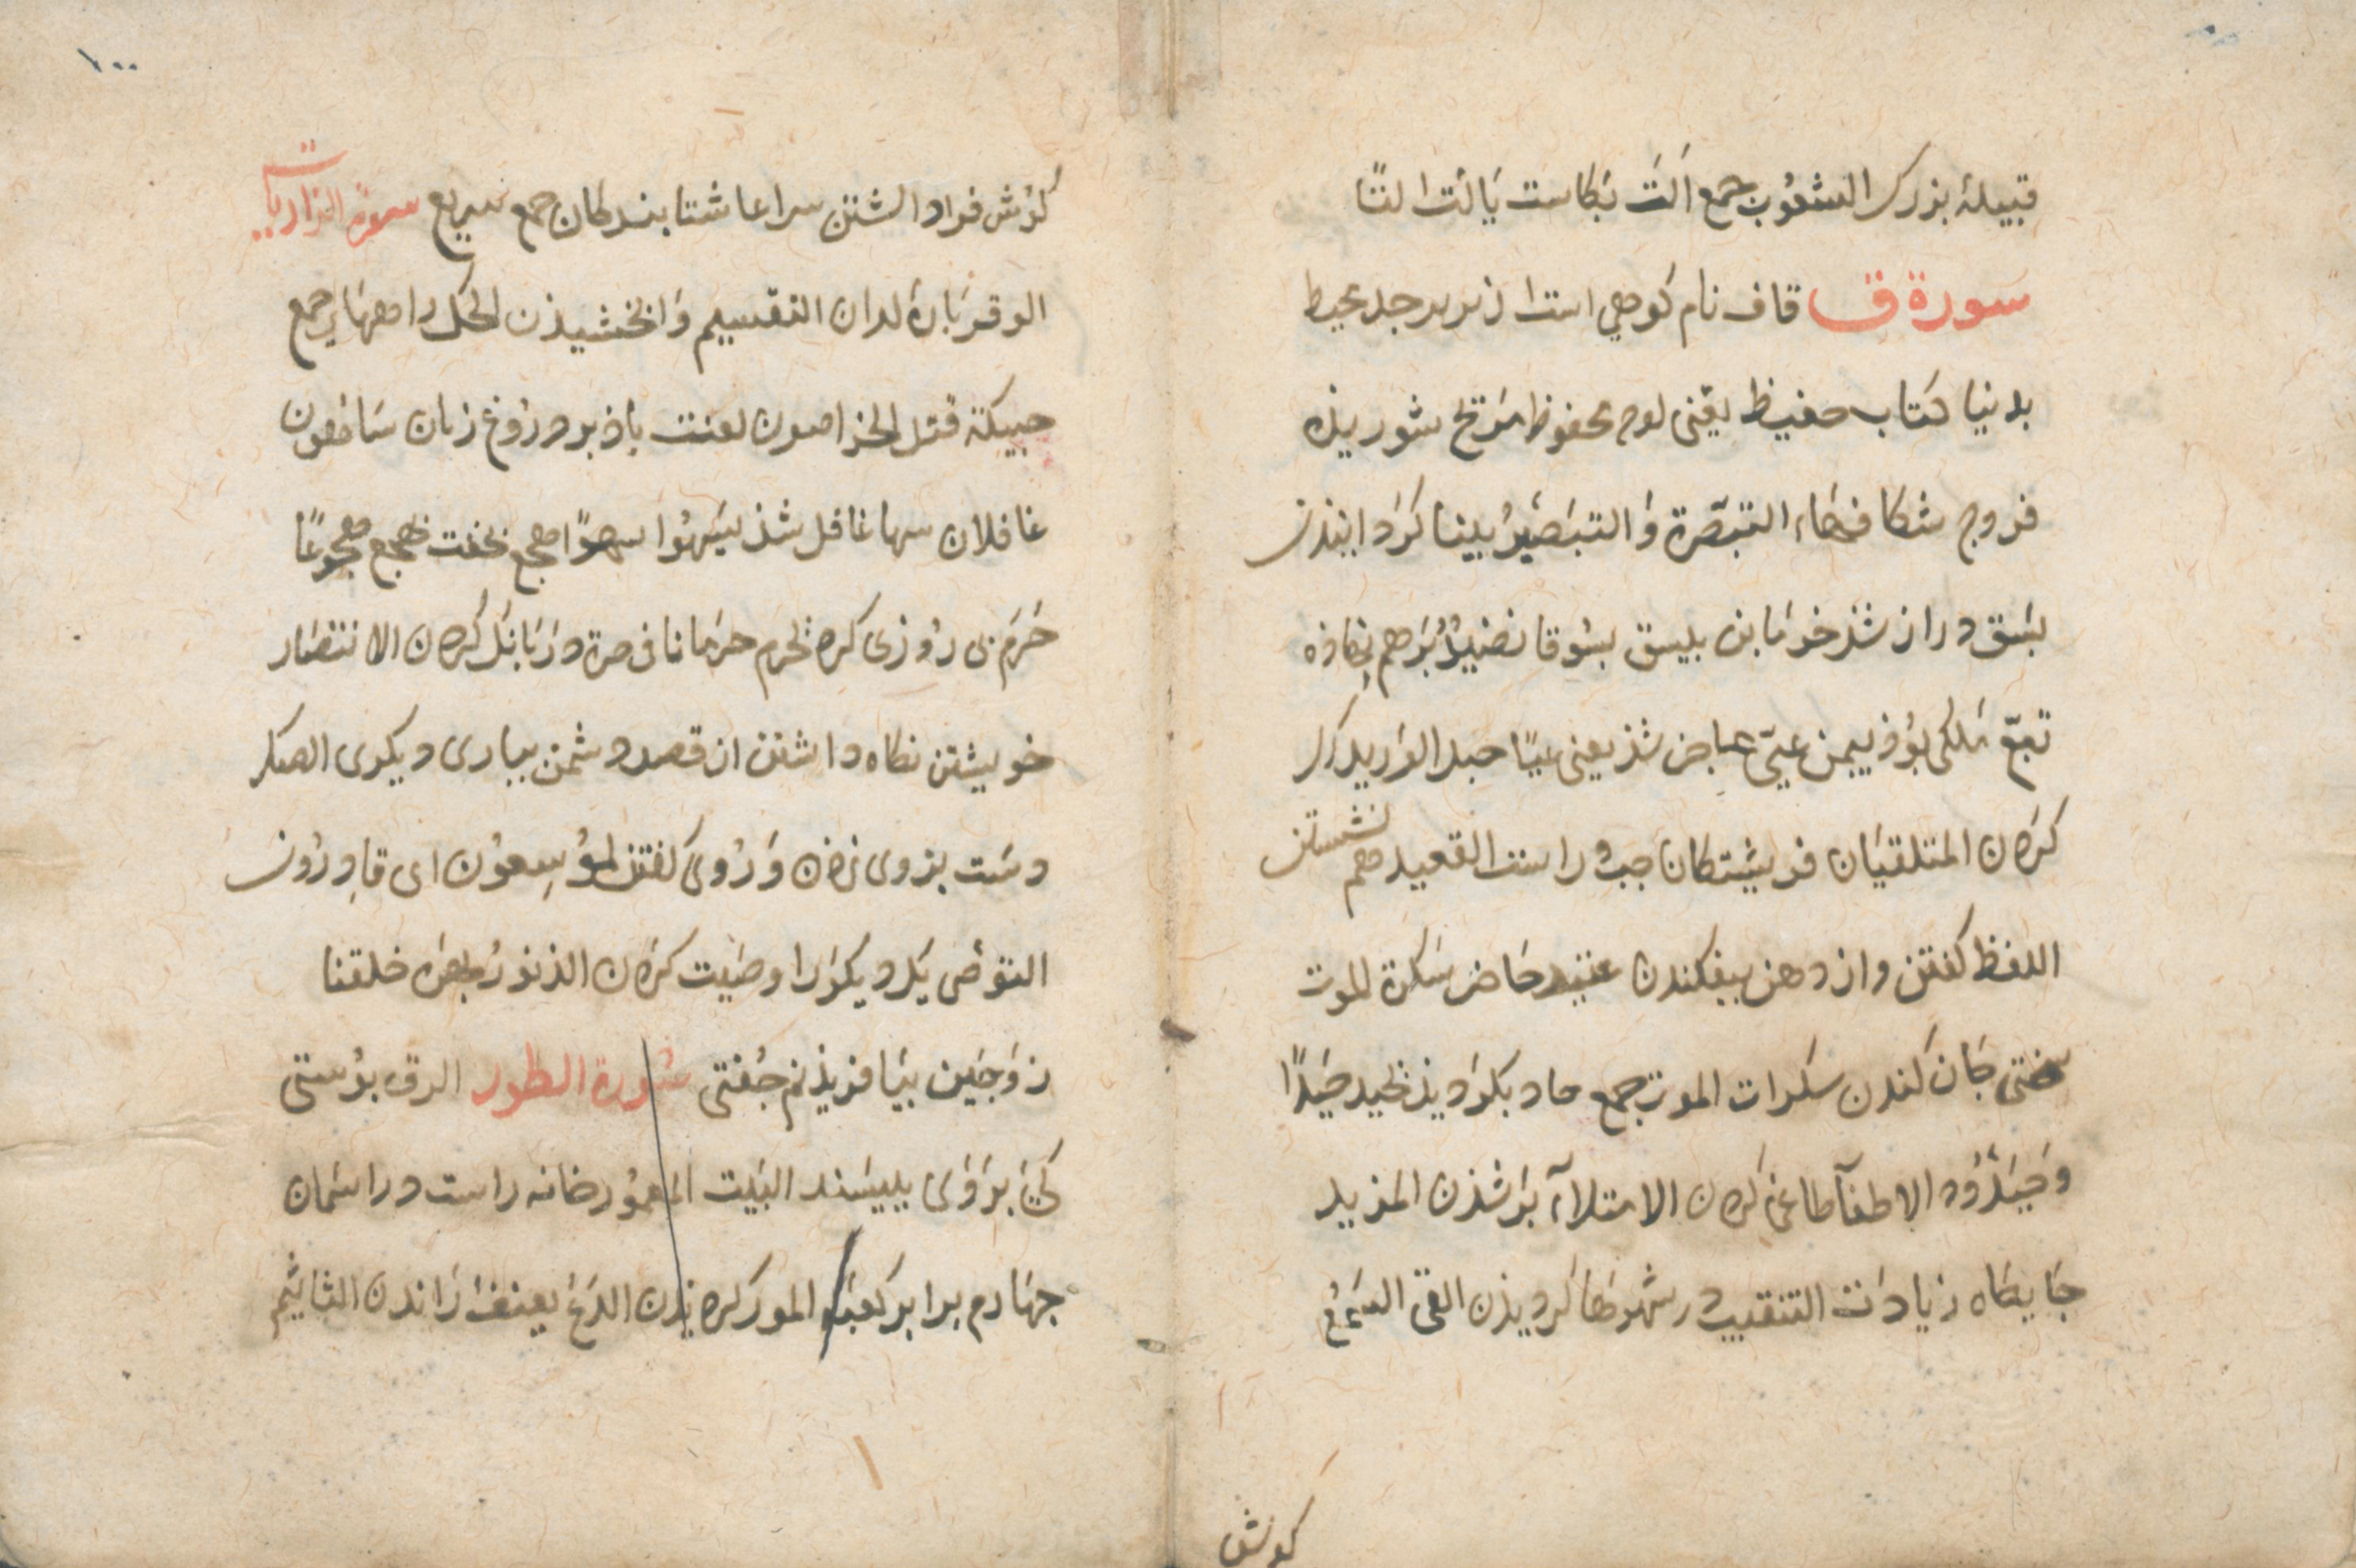 قبیلهٔ بزرک الشعُوب جمع اَلَتَ بکاست یَالتُ التًا
سورة ق قاف نام کوهی است از زبرجد محیط
بدنیا کتاب حفیظ یعنی لوح محفوظ مَرِیج شوریذه
فروج شکافها، التبصّرة وَ التبَصیرُ بینا کردانیذن
بَسَق دراز شذ خرمابن یبسق بسُوقا نضیدٌ بَرهم نهاذه
تبّع مَلِکی بُوذ بیمن عیّ عاجز شذ یعنی عیًا حبل الوَرید رک
کردن المتلقیَان فریشتکان جب و راست القعید هم نشستن
اللفظ کفتن و از دهن بیفکندن عتید حَاضر سَکرة الموت
سختی جَان کندن سکرات الموت جمع حاد بکردیذ یحید حَیدًا
وَحَیدُودة الاطغآ طاغی کردن الامتلآء بُر شذن المزید
جَایکاه زیادَت التنقیب در شهرها کردیذن القی السَمعُ
کوش
۱۰۰
کوش فراداشتن سراعا شتابندکان جمع سریع سورة الذاریات
الوقر بَارِ کران التقسیم وَابخشیذن الحبک راهها جمع
حبیکة قتل الخراصون لعنت باذ بر دروغ زنان سَاهُون
غافلان سها غافل شذ یَسهُوا سهوًا هجع بخفت یهجع هجوعًا
حَرَم بی روزی کرد یحرم حرمانا فی صرة در بَانک کردن الانتصَار
خویشتن نکاه داشتن از قصد دشمن بیاری دیکری الصک
دست بروی زدن وَرُوی کفتن لموُسِعوُن ای قادِرُون
التوصی یک دیکر را وصَیت کردن الذنوبُ بهره خلقنا
زَوجَین بیَافریذیم جُفتی سُورة الطور الرق بوُستی
کی بَر وَی بیسَند البَیت المعمُور خانه راست در اسمان
جهارم برابر کعبه المور کردیذن الدَع بعنف رَاندن التاثیم